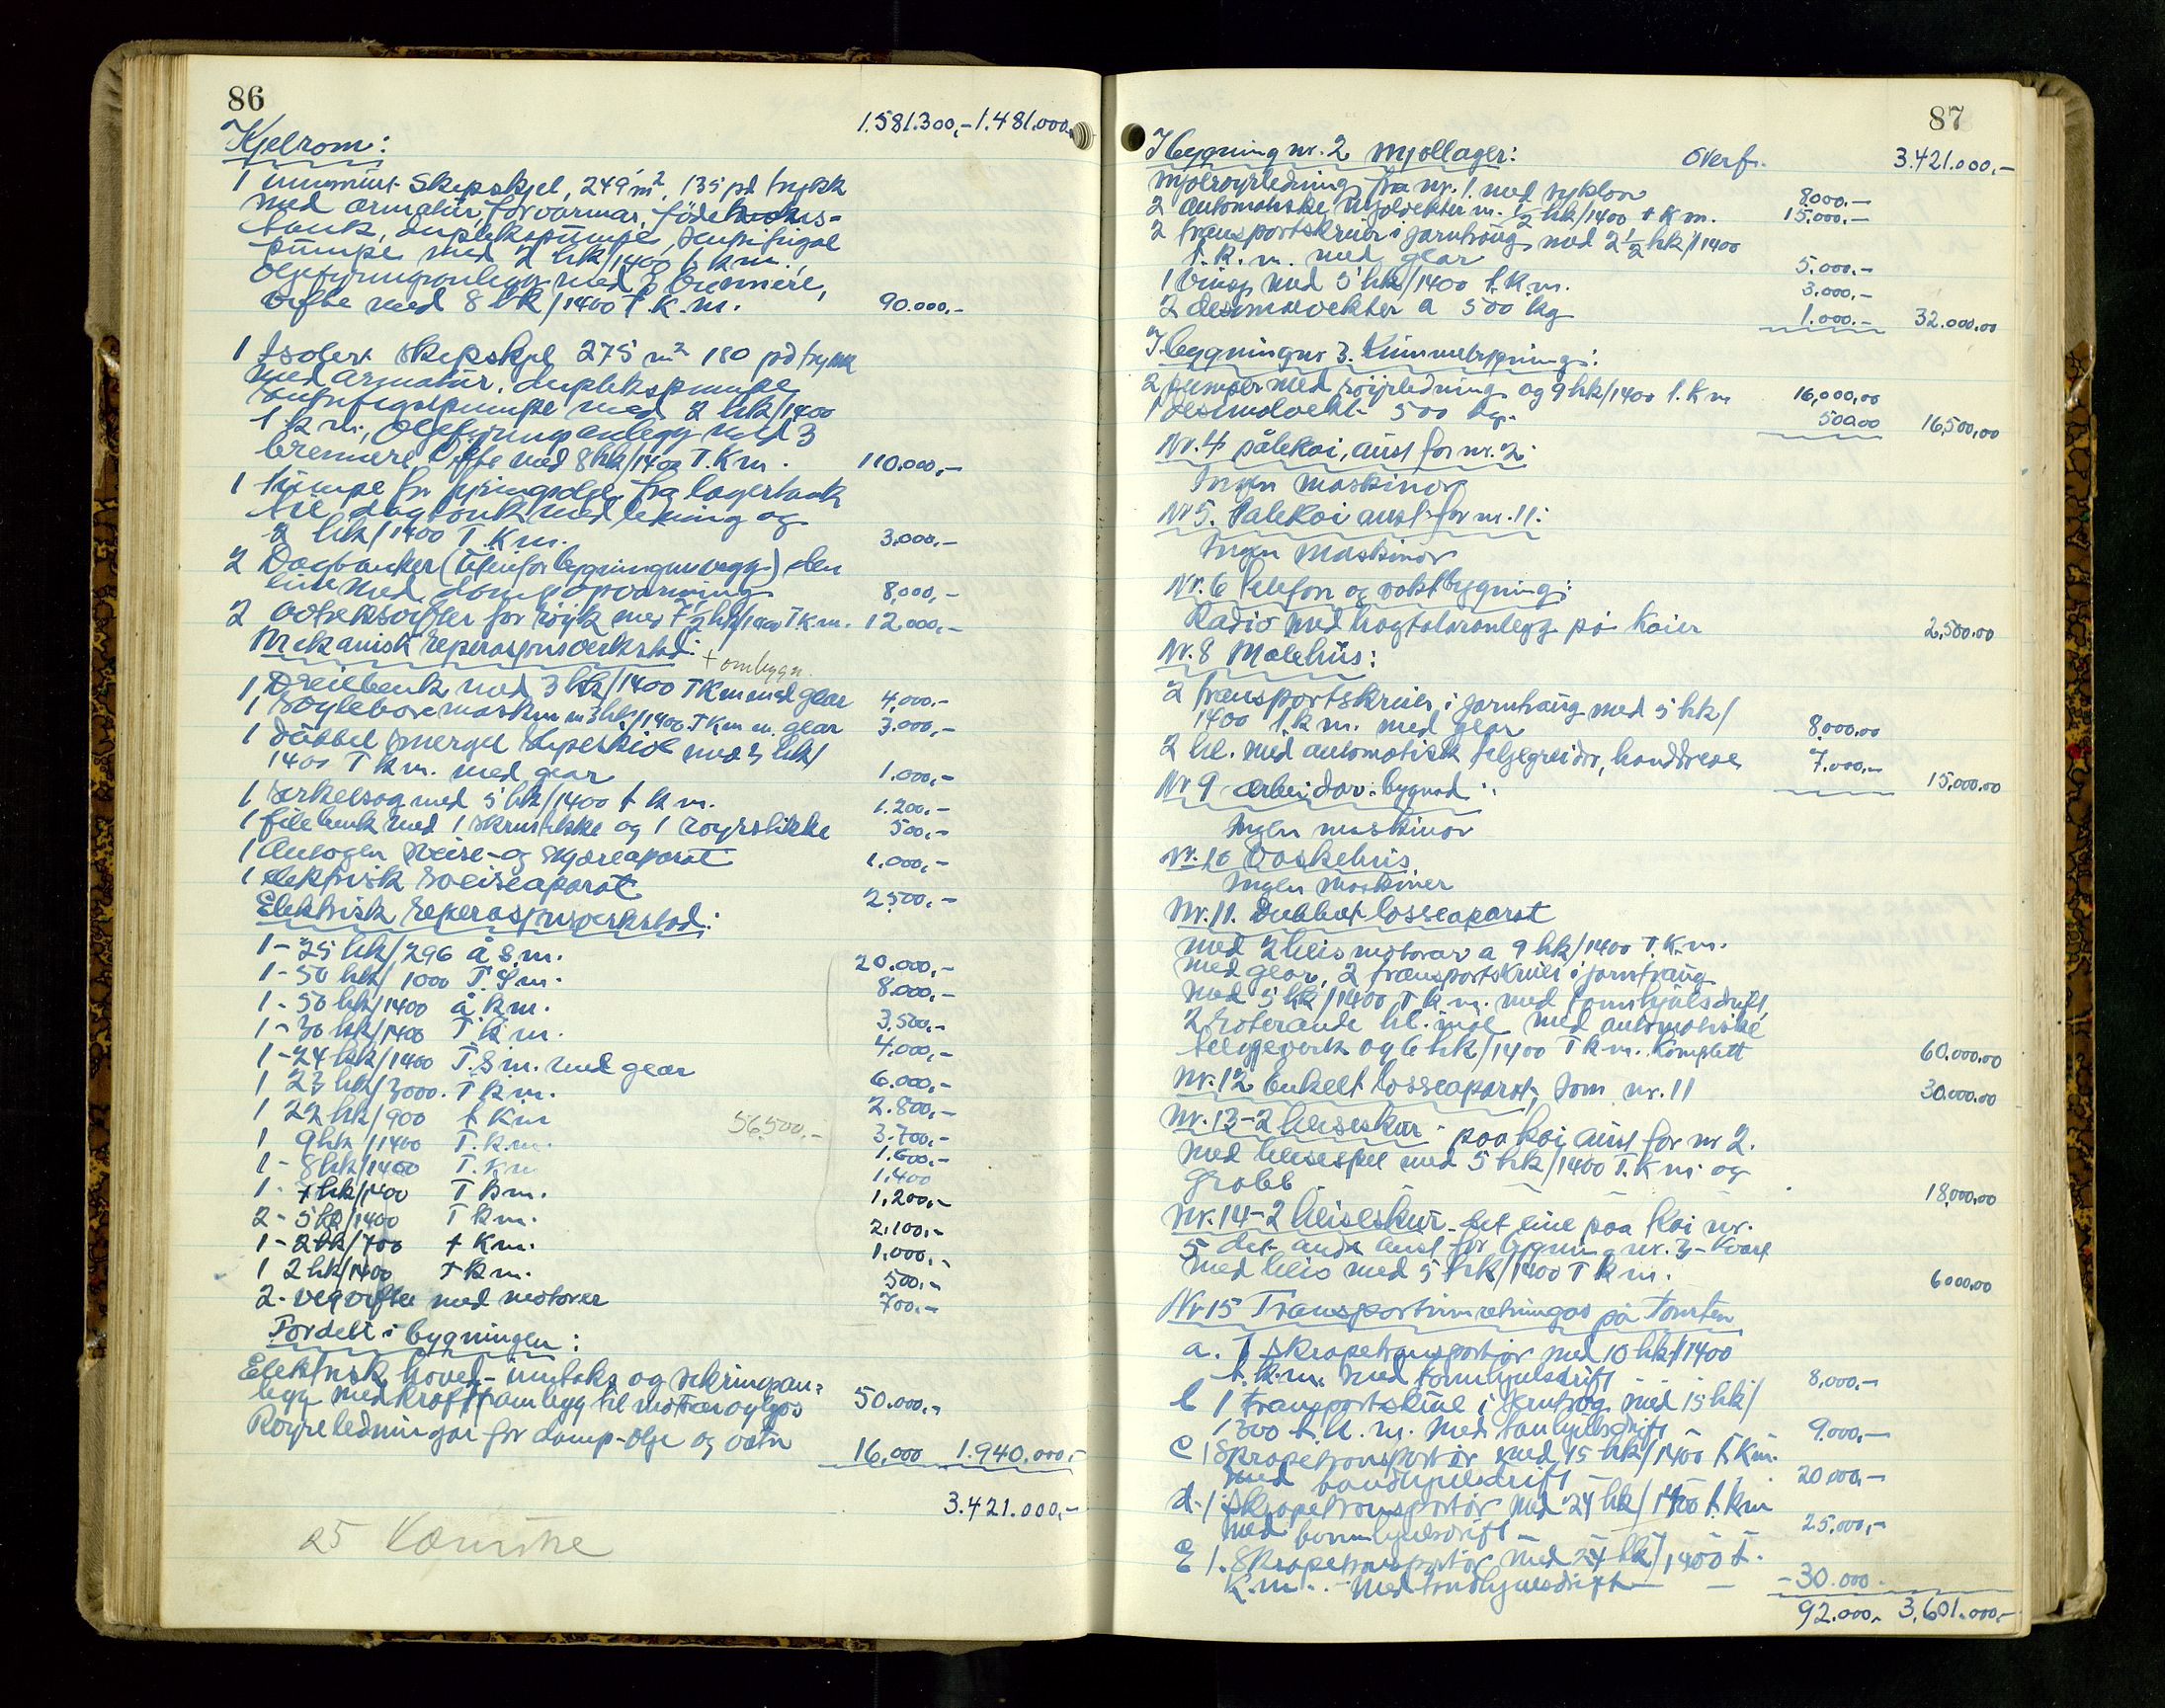 86
1.581.300,- 1.481.000,
Kjelrom:
1 innmurt skipskjel, 249 m², 135 pd trykk
med armatur, forvarmar, föde
tank, duplekspumpe, sentrifugal
pumpe med 2 hk/1400 t k m.,
oljefyringsanlegg med 3 brennere,
vifte med 8 hk/1400 T.K.m. 90.000,-
1 Isolert skipskjel 275 m² 180 pd trykk
med armatur, duplekspumpe
sentrifugalpumpe med 2 hk/1400
t k m., oljefyringsanlegg med 3
brennere vifte med 8 hk/1400 T.K m. 110.000,-
1 Pumpe for fyringsolje fra lagertank
til dagtank med leining og
2 hk/1400 T.K m. 3.000,-
2 Dagtanker (utenfor bygningens vegg) den
eine med dampopvarming 8,000,-
2 avtreksvifter for röyk med 7½ hk/1400 T K m. 12.000,-
Mekanisk reperasjonsverkstad:
+ ombygn.
1 Dreiebenk med 3 hk/1400 T K m med gear 4,000,-
1 Söyleboremaskin m 3 hk/1400 T K m m. gear 3.000,-
1 Dubbel smergel slipeskive med 3 hk/
1400 T k m. med gear 1.000,-
1 Serkelsag med 5 hk/1400 t k m. 1.200,-
1 filebenk med 1 skrustikke og 1 röyrstikke 500,-
1 Autogen sveise- og skjæreaparat 1.000,-
1 elektrisk sveiseaparat 2.500,-
Elektrisk reperasjonsverkstad:
1 - 25 hk/296 å s m. 20.000,-
1 - 50 hk/1000 T.S m. 8.000,-
1 - 50 hk/1400 å k m. 3.500,-
1 - 30 hk/1400 T k m. 4.000,-
1 - 24 hk/1400 T.S m. med gear 6.000,-
1 23 hk/3000. T k m. 2.800,-
1 22 hk/900 t K m 56.500,- 3.700,-
1 9 hk/1400 T.k.m. 1.600,-
1 - 8 hk/1400 T.K m 1.400
1 - 7 hk/1400 T k m. 1,200,-
2 - 5 hk/1400 T k m. 2.100,-
1 - 2 hk/700 t K m. 1.000,-
1 2 hk/1400 t k m. 500,-
2 - vegvifter med motorer 700,-
Fordelt i bygningen:
Elektrisk hoved-inntaks og sikringsan=
legg med kraftanlegg til motorer og lys 50.000,-
Röyrledningar for damp-olje og vatn 16,000 1.940.000,-
3.421.000,-
25
87
I bygning nr. 2 mjøllager: Overf. 3.421.000,-
Mjølröyrledning fra nr. 1. med syklon 8000.-
2 automatiske mjølvekter m. ½ hk/1400 t K m. 15.000.-
2 transportskruer i jarntraug med 2½ hk/1400
t. k. m. med gear 5.000.-
1 Vinsj med 5 hk/1400 t.k.m. 3.000,-
2 desimalvekter a 500 kg 1.000.- 32.000.00
I bygning nr 3. Kummebygning:
2 pumper med röyrledning og 9 hk/1400 t.k m 16,000,00
1 desimalvekt 500 kg. 500.00 16,500,00
Nr. 4 pålekai, aust for nr. 2:
Ingen maskinor
Nr 5. Pålekai aust for nr. 11:
Ingen maskinor
Nr. 6 telefon og vaktbygning:
Radio med högtalaranlegg på kaier 2,500.00
Nr. 8 Målehus:
2 transportskruer i jarntraug med 5 hk/
1400 t.k m. med gear 8,000.00
2 hl. med automatisk teljegreidor, handdreve 7.000,- 15,000.00
Nr 9 arbeidar.bygnad:
Ingen maskinor
Nr. 10 Vaskehus
Ingen maskiner
Nr. 11. Dubbelt losseaparat
med 2 heismotorar a 9 hk/1400 T.K.m.
med gear, 2 transportskruer i jarntraug
med 5 hk/1400 T k m. med tannhjulsdrift,
2 roterande hl. mål med automatiske
teljeverk og 6 hk/1400 T k m. komplett 60.000.00
Nr. 12 Enkelt losseaparat, som nr. 11 30.000.00
Nr. 13 - 2 heiseskur - paa kai aust for nr 2.
med heisespel med 5 hk/1400 T.K m. og
Grabb 18,000,00
Nr. 14 - 2 heiseskur - det eine paa kai nr.
5 det andre aust for bygning nr. 3 - kvart
med heis med 5 hk/1400 T k m. 6000,00
Nr 15 Transportinnretningar på Tomten
a. 1 skrapetransportör med 10 hk/1400
t.k.m. med tannhjulsdrift 8,000,-
b 1 transportskrue i jarntrog med 15 hk/
1300 t.k.m. med tannhjulsdrift 9.000,-
c 1 Skrapetransportör med 15 hk/1400 t.K m.
med tannhjulsdrift 20.000,-
d. 1 Skrapetransportör med 24 hk/1400 t.k m
med tannhjulsdrift - 25.000,-
E 1. Skrapetransportör med 24 hk/1400 t.
K.m. - med tandhjulsdrift - 30.000.
92.000,- 3,601.000,-